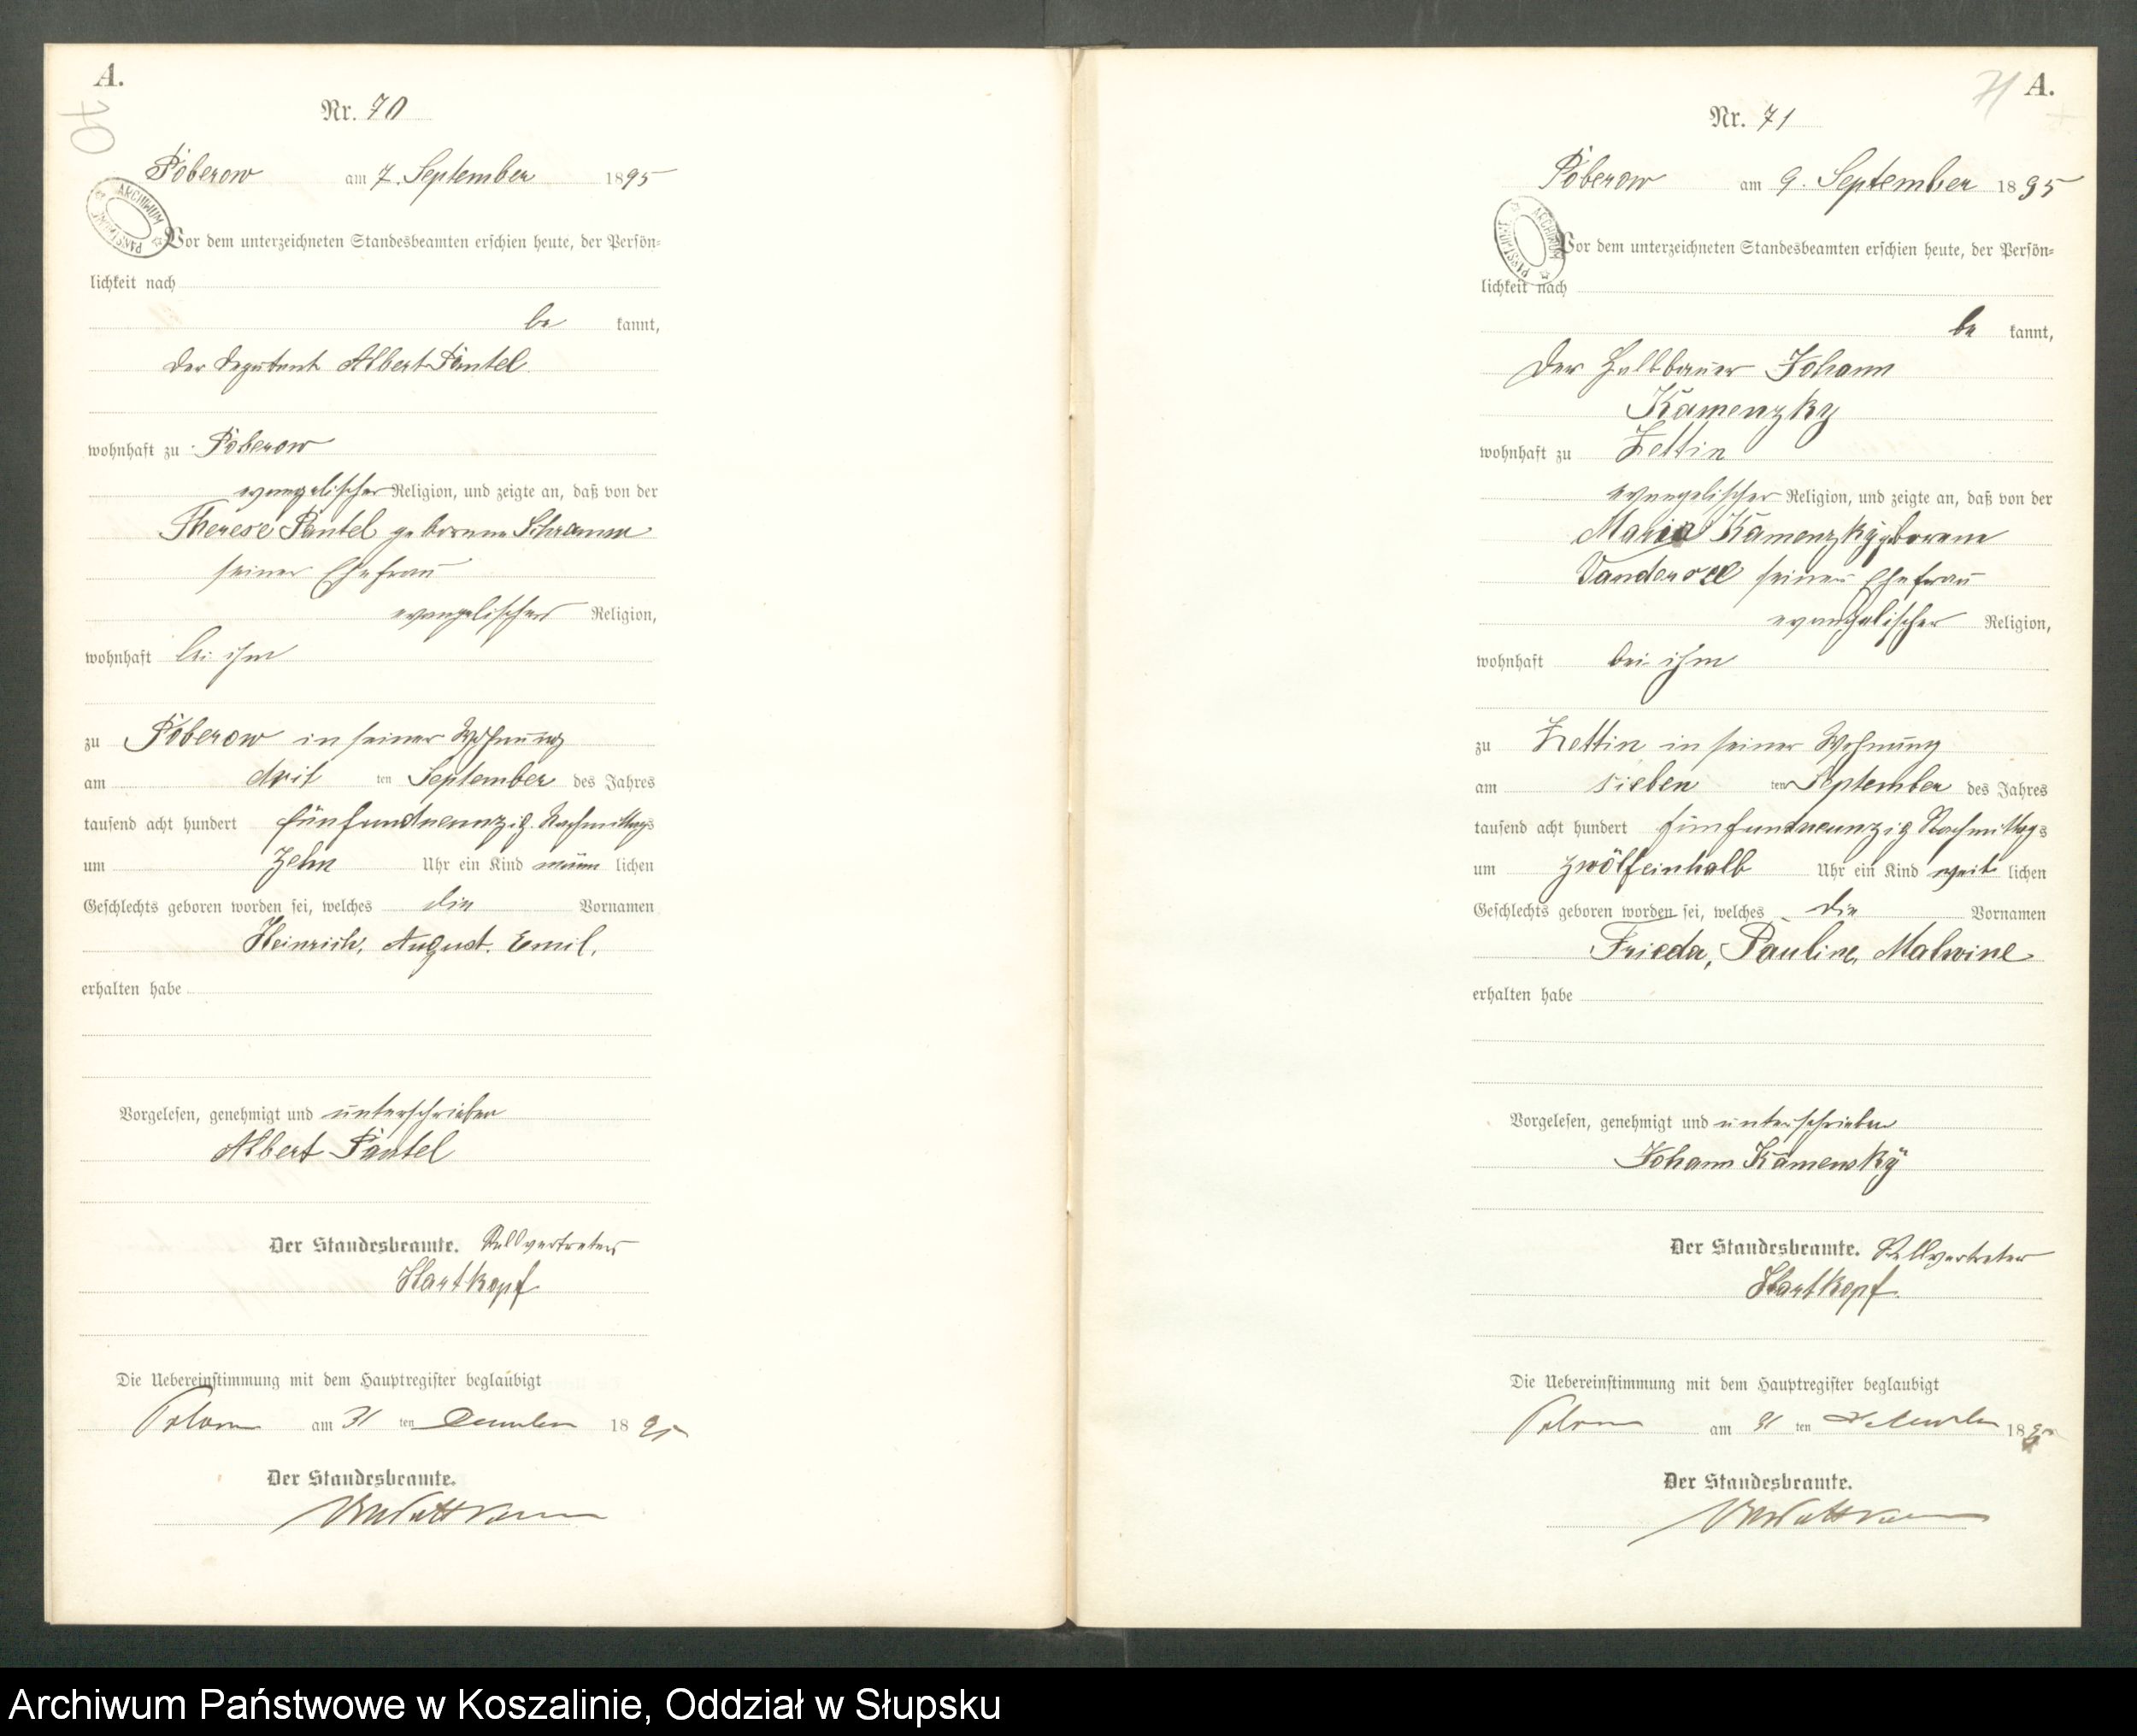 A.
70
Nr. 70
Pöberow am 7. September 1895
ARCHIWUM PAŃSTWOWE
Vor dem unterzeichneten Standesbeamten erschien heute, der Persön=
lichkeit nach
be kannt,
der Deputant Albert Päntel
wohnhaft zu Pöberow
evangelischer Religion, und zeigte an, daß von der
Therese Päntel geborene Schramm
seiner Ehefrau
evangelischer Religion,
wohnhaft bei ihm
zu Pöberow in seiner Wohnung
am drit ten September des Jahres
tausend acht hundert fünfundneunzig Nachmittags
um Zehn Uhr ein Kind männ lichen
Geschlechts geboren worden sei, welches die Vornamen
Heinrich, August. Emil.
erhalten habe
Vorgelesen, genehmigt und unterschrieben
Albert Päntel
Der Standesbeamte. Stellvertreter
Hartkopf
Die Uebereinstimmung mit dem Hauptregister beglaubigt
am 31 ten December 18 95
Der Standesbeamte.
71 A.
Nr. 71
Pöberow am 9. September 1895
ARCHIWUM PAŃSTWOWE
Vor dem unterzeichneten Standesbeamten erschien heute, der Persön=
lichkeit nach
be kannt,
Der Halbbauer Johann
Kamenzky
wohnhaft zu Zettin
evangelischer Religion, und zeigte an, daß von der
Maria Kamenzky geborene
Vanderose seiner Ehefrau
evangelischer Religion,
wohnhaft bei ihm
zu Zettin in seiner Wohnung
am sieben ten September des Jahres
tausend acht hundert fünfundneunzig Nachmittags
um zwölfeinhalb Uhr ein Kind weib lichen
Geschlechts geboren worden sei, welches die Vornamen
Frieda, Pauline, Malwine
erhalten habe
Vorgelesen, genehmigt und unterschrieben
Johann Kamensky
Der Standesbeamte. Stellvertreter
Hartkopf.
Die Uebereinstimmung mit dem Hauptregister beglaubigt
am 31 ten December 1895
Der Standesbeamte.
Archiwum Państwowe w Koszalinie, Oddział w Słupsku